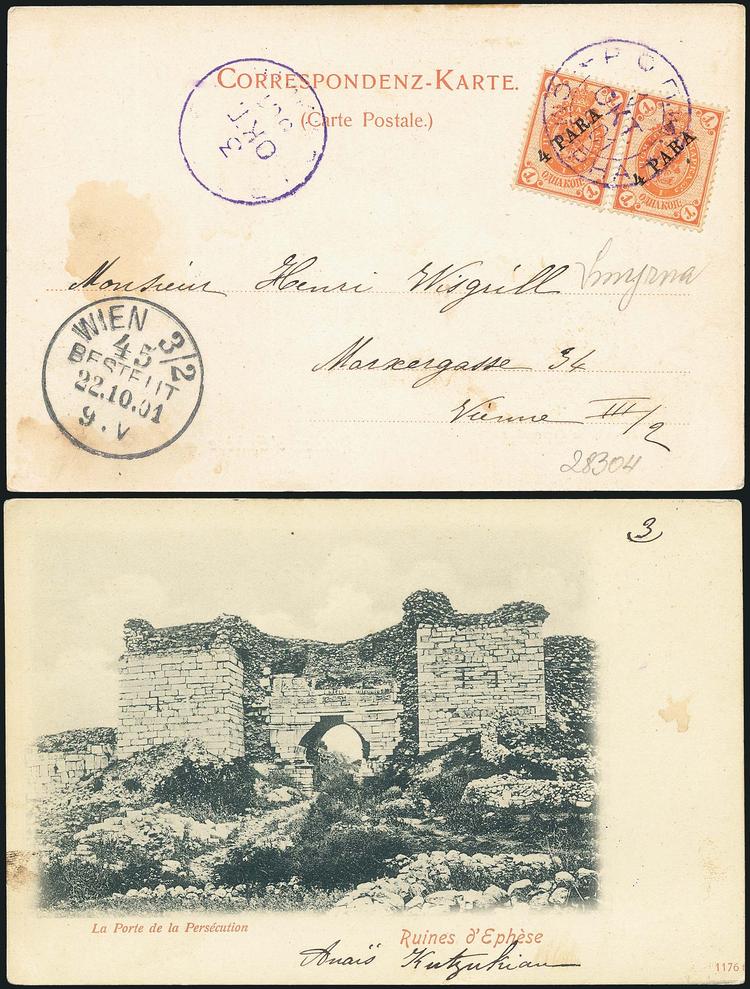 CORRESPONDENZ-KARTE.
(Carte Postale.)
3
ОКТ
4 PARA
4 PARA
ОДНА КОП.
ОДНА КОП.
Monsieur Henri Wisgrill
Smyrna
Marxergasse 34
Vienne III/2
28304
WIEN 3/2
45
BESTELLT
22.10.01
9.V
3
La Porte de la Persécution
Ruines d'Ephèse
Anaïs Kutzukian
1176